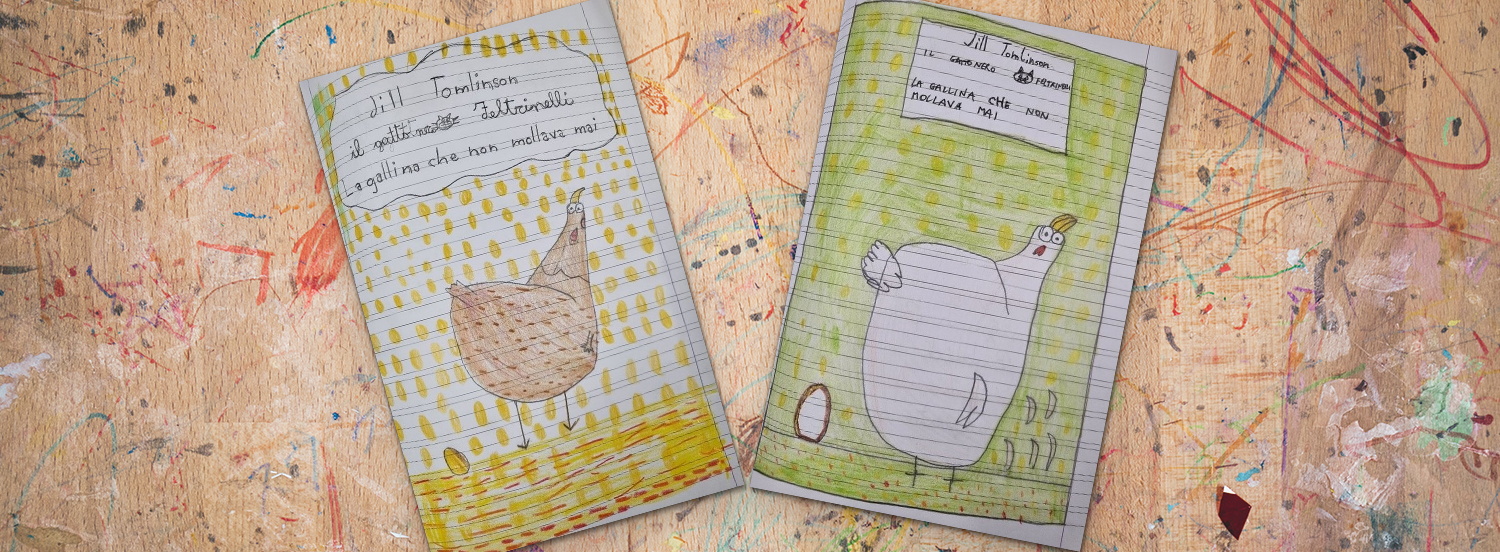 Jill Tomlinson
il gatto nero Feltrinelli
La gallina che non mollava mai
Jill Tomlinson
IL GATTO NERO FELTRINELLI
LA GALLINA CHE NON
MOLLAVA MAI